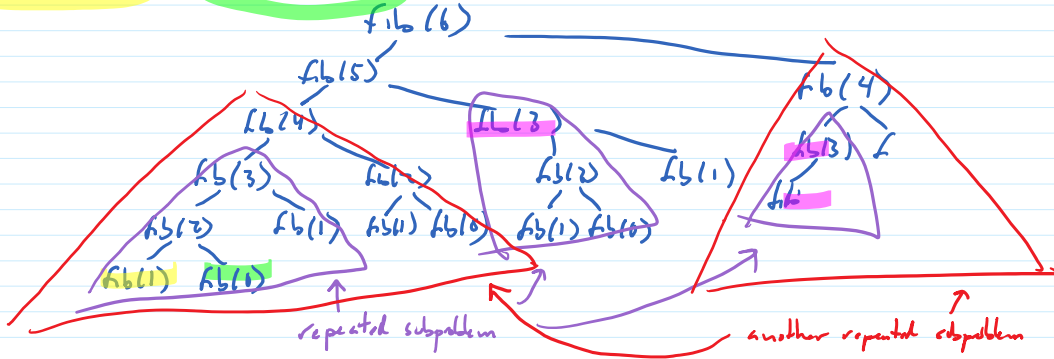 fib(6)
fib(5)
fib(4)
fib(4) fib(3)
fib(3) f
fib(3) fib(2) fib(2) fib(1)
fib(2) fib(1) fib(1) fib(0) fib(1) fib(0)
fib(1) fib(0)
repeated subproblem another repeated subproblem